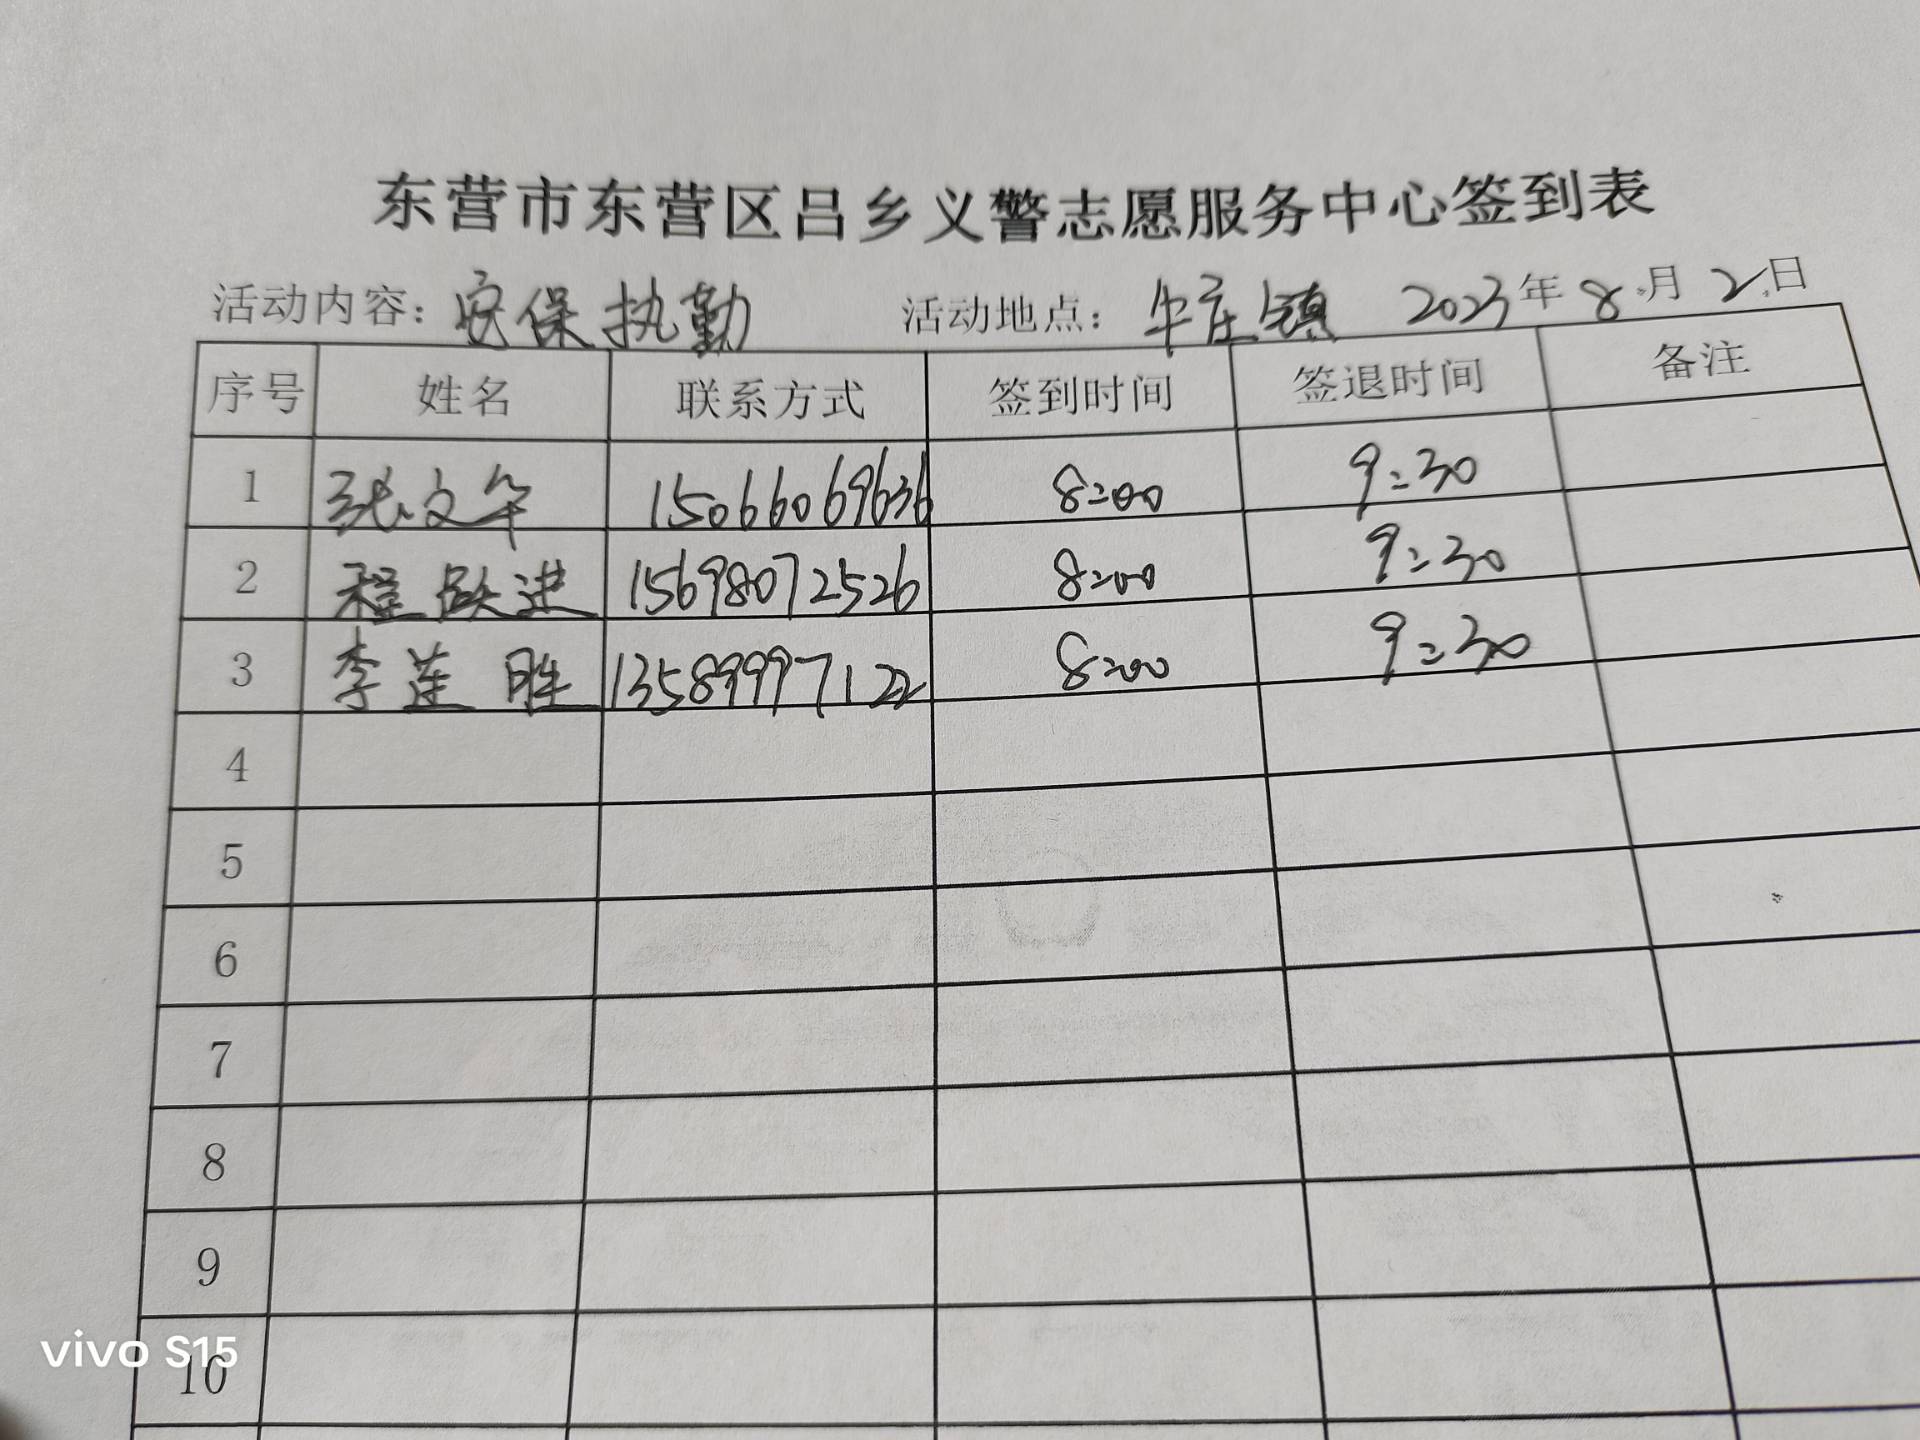 东营市东营区吕乡义警志愿服务中心签到表
活动内容：安保执勤 活动地点：牛庄镇 2023年8月2日
序号 姓名 联系方式 签到时间 签退时间 备注
1 张文华 15066069636 8:00 9:30
2 程跃进 15698072526 8:00 9:30
3 李莲胜 13589997122 8:00 9:30
4
5
6
7
8
9
10
vivo S15